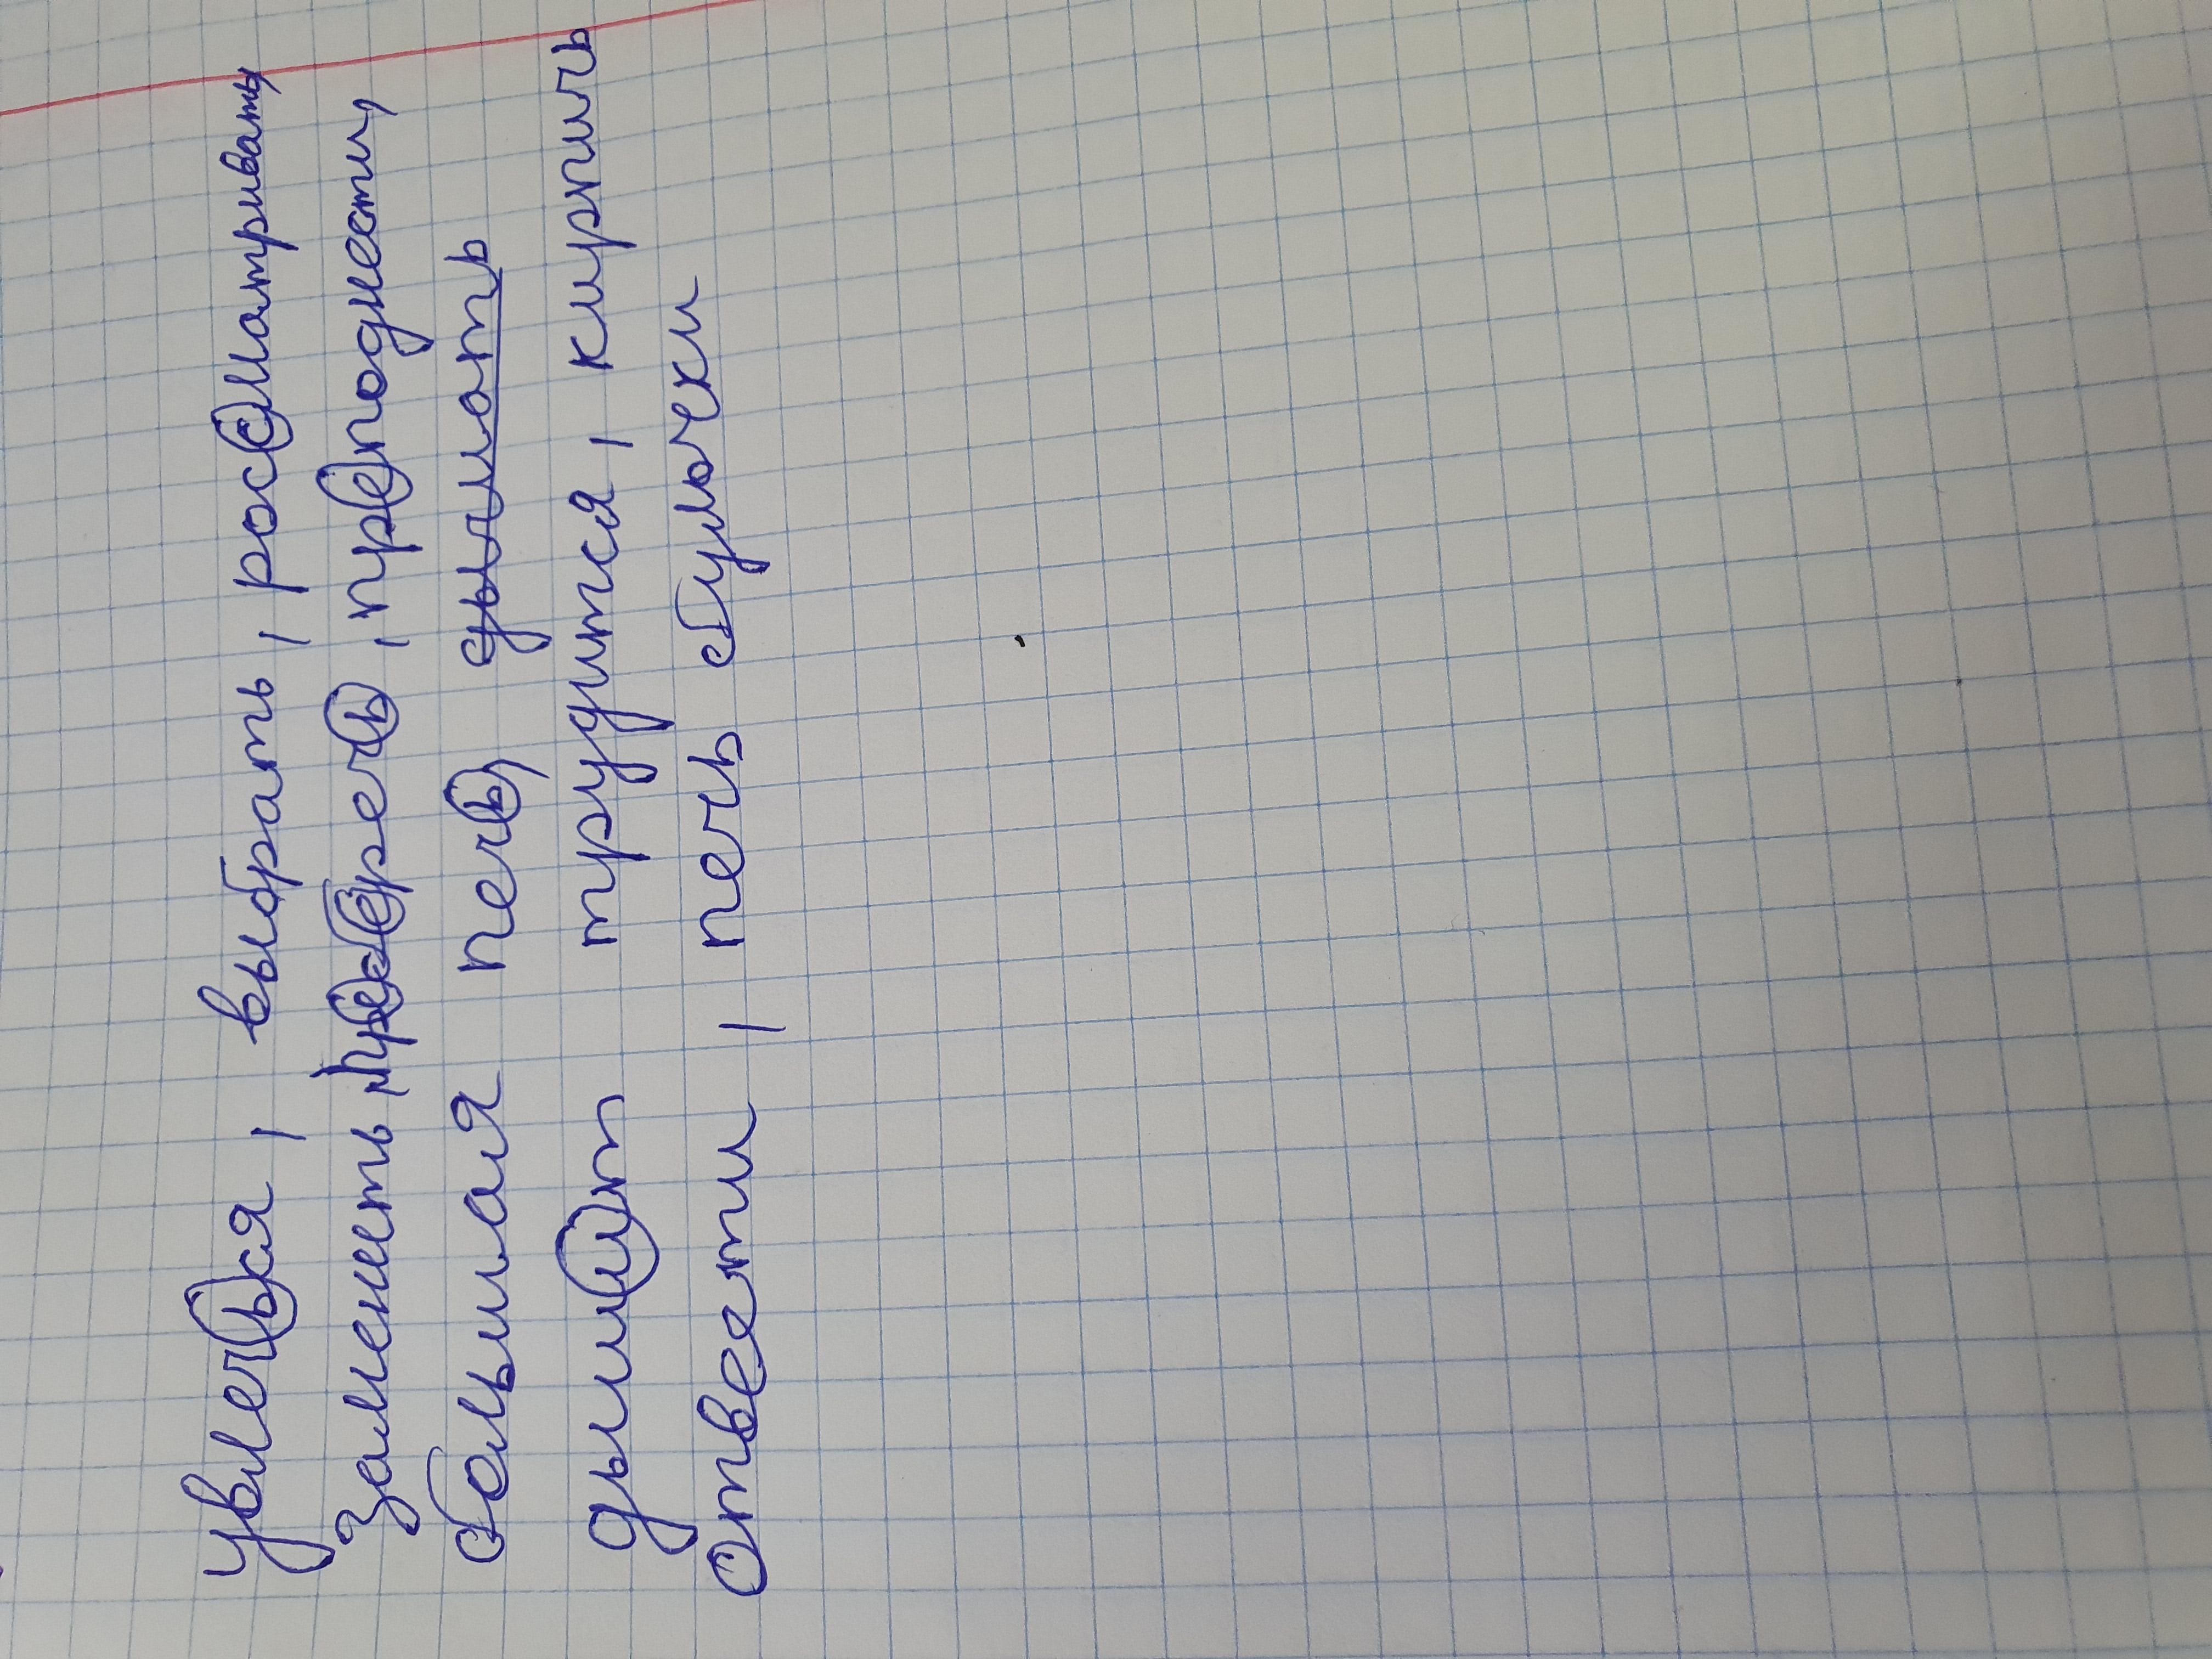 увлечься, выбрать, россматривать
заменить, пресеречь, преподнести,
большая печь, дышоть
дышит трудится, кирпичь
отвеети, печь булочки